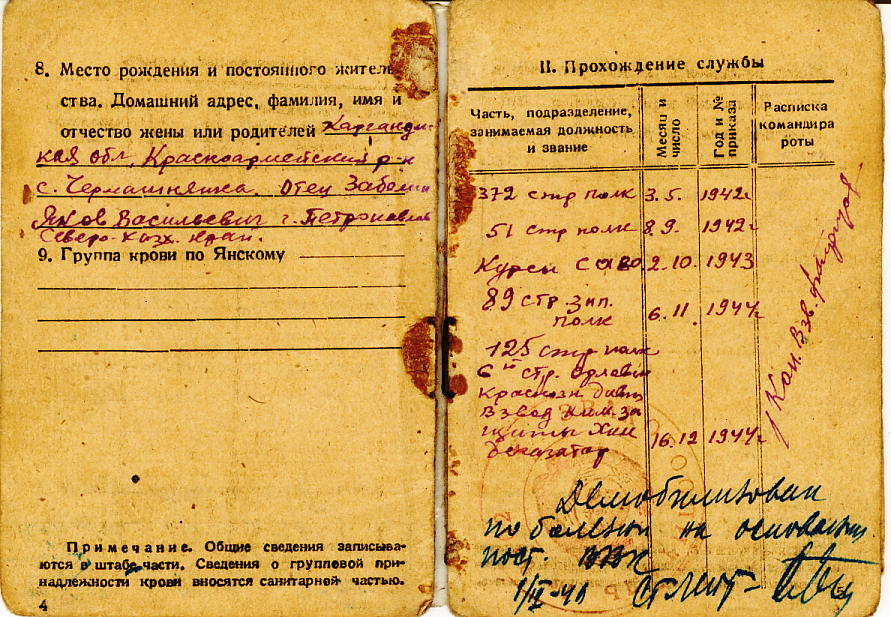 8. Место рождения и постоянного житель-
ства. Домашний адрес, фамилия, имя и
отчество жены или родителей Карагандин
ская обл, Красноармейский р-н
с. Чермашнянка. Отец
Яков Васильевич г. Петропавлов
Северо-Казх.
9. Группа крови по Янскому
Примечание. Общие сведения записыва-
ются в штабе части. Сведения о групповой при-
надлежности крови вносятся санитарной частью.
4
II. Прохождение службы
Часть, подразделение,
занимаемая должность
и звание
Месяц и
число
Год и №
приказа
Расписка
командира
роты
372 стр полк 3.5. 1942г
51 стр полк 8.9. 1942г
Курсы 2.10. 1943
89 стр. зап.
полк 6.11. 1944г
125 стр полк
6й стр. Орловск
Краснозн див
Взвод хим. за
щиты Хим
16.12 1944г
Ком. Взв.
Демобилизован
по болезни на основании
пост. ВВК
Ст. Лейт-